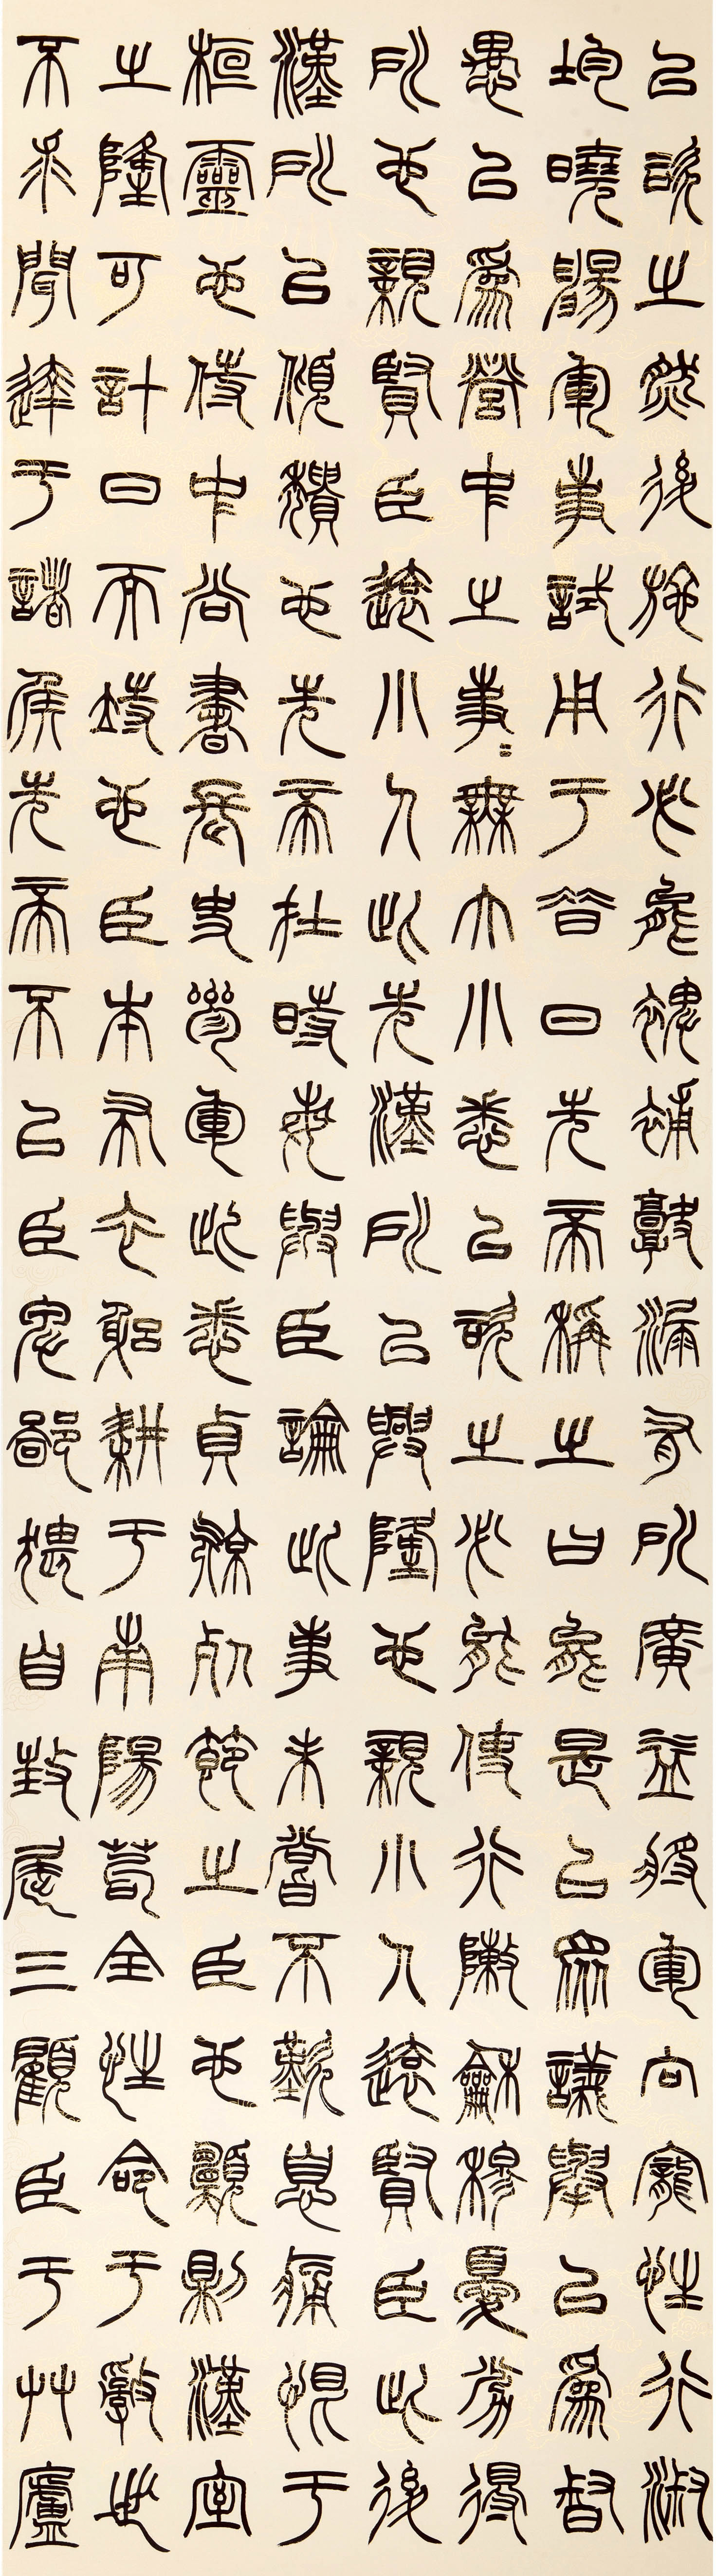 以諮之然後施行必能裨補闕漏有所廣益將軍向寵性行淑
均曉暢軍事試用于昔日先帝稱之曰能是以眾議舉以為督
愚以為營中之事事無大小悉以諮之必能使行陳和穆優劣得
所也親賢臣遠小人此先漢所以興隆也親小人遠賢臣此後
漢所以傾頹也先帝在時每與臣論此事未嘗不歎息痛恨于
桓靈也侍中尚書長史參軍此悉貞亮死節之臣也願則漢室
之隆可計日而待也臣本布衣躬耕于南陽苟全性命于亂世
不求聞達于諸侯先帝不以臣卑鄙猥自枉屈三顧臣于艸廬